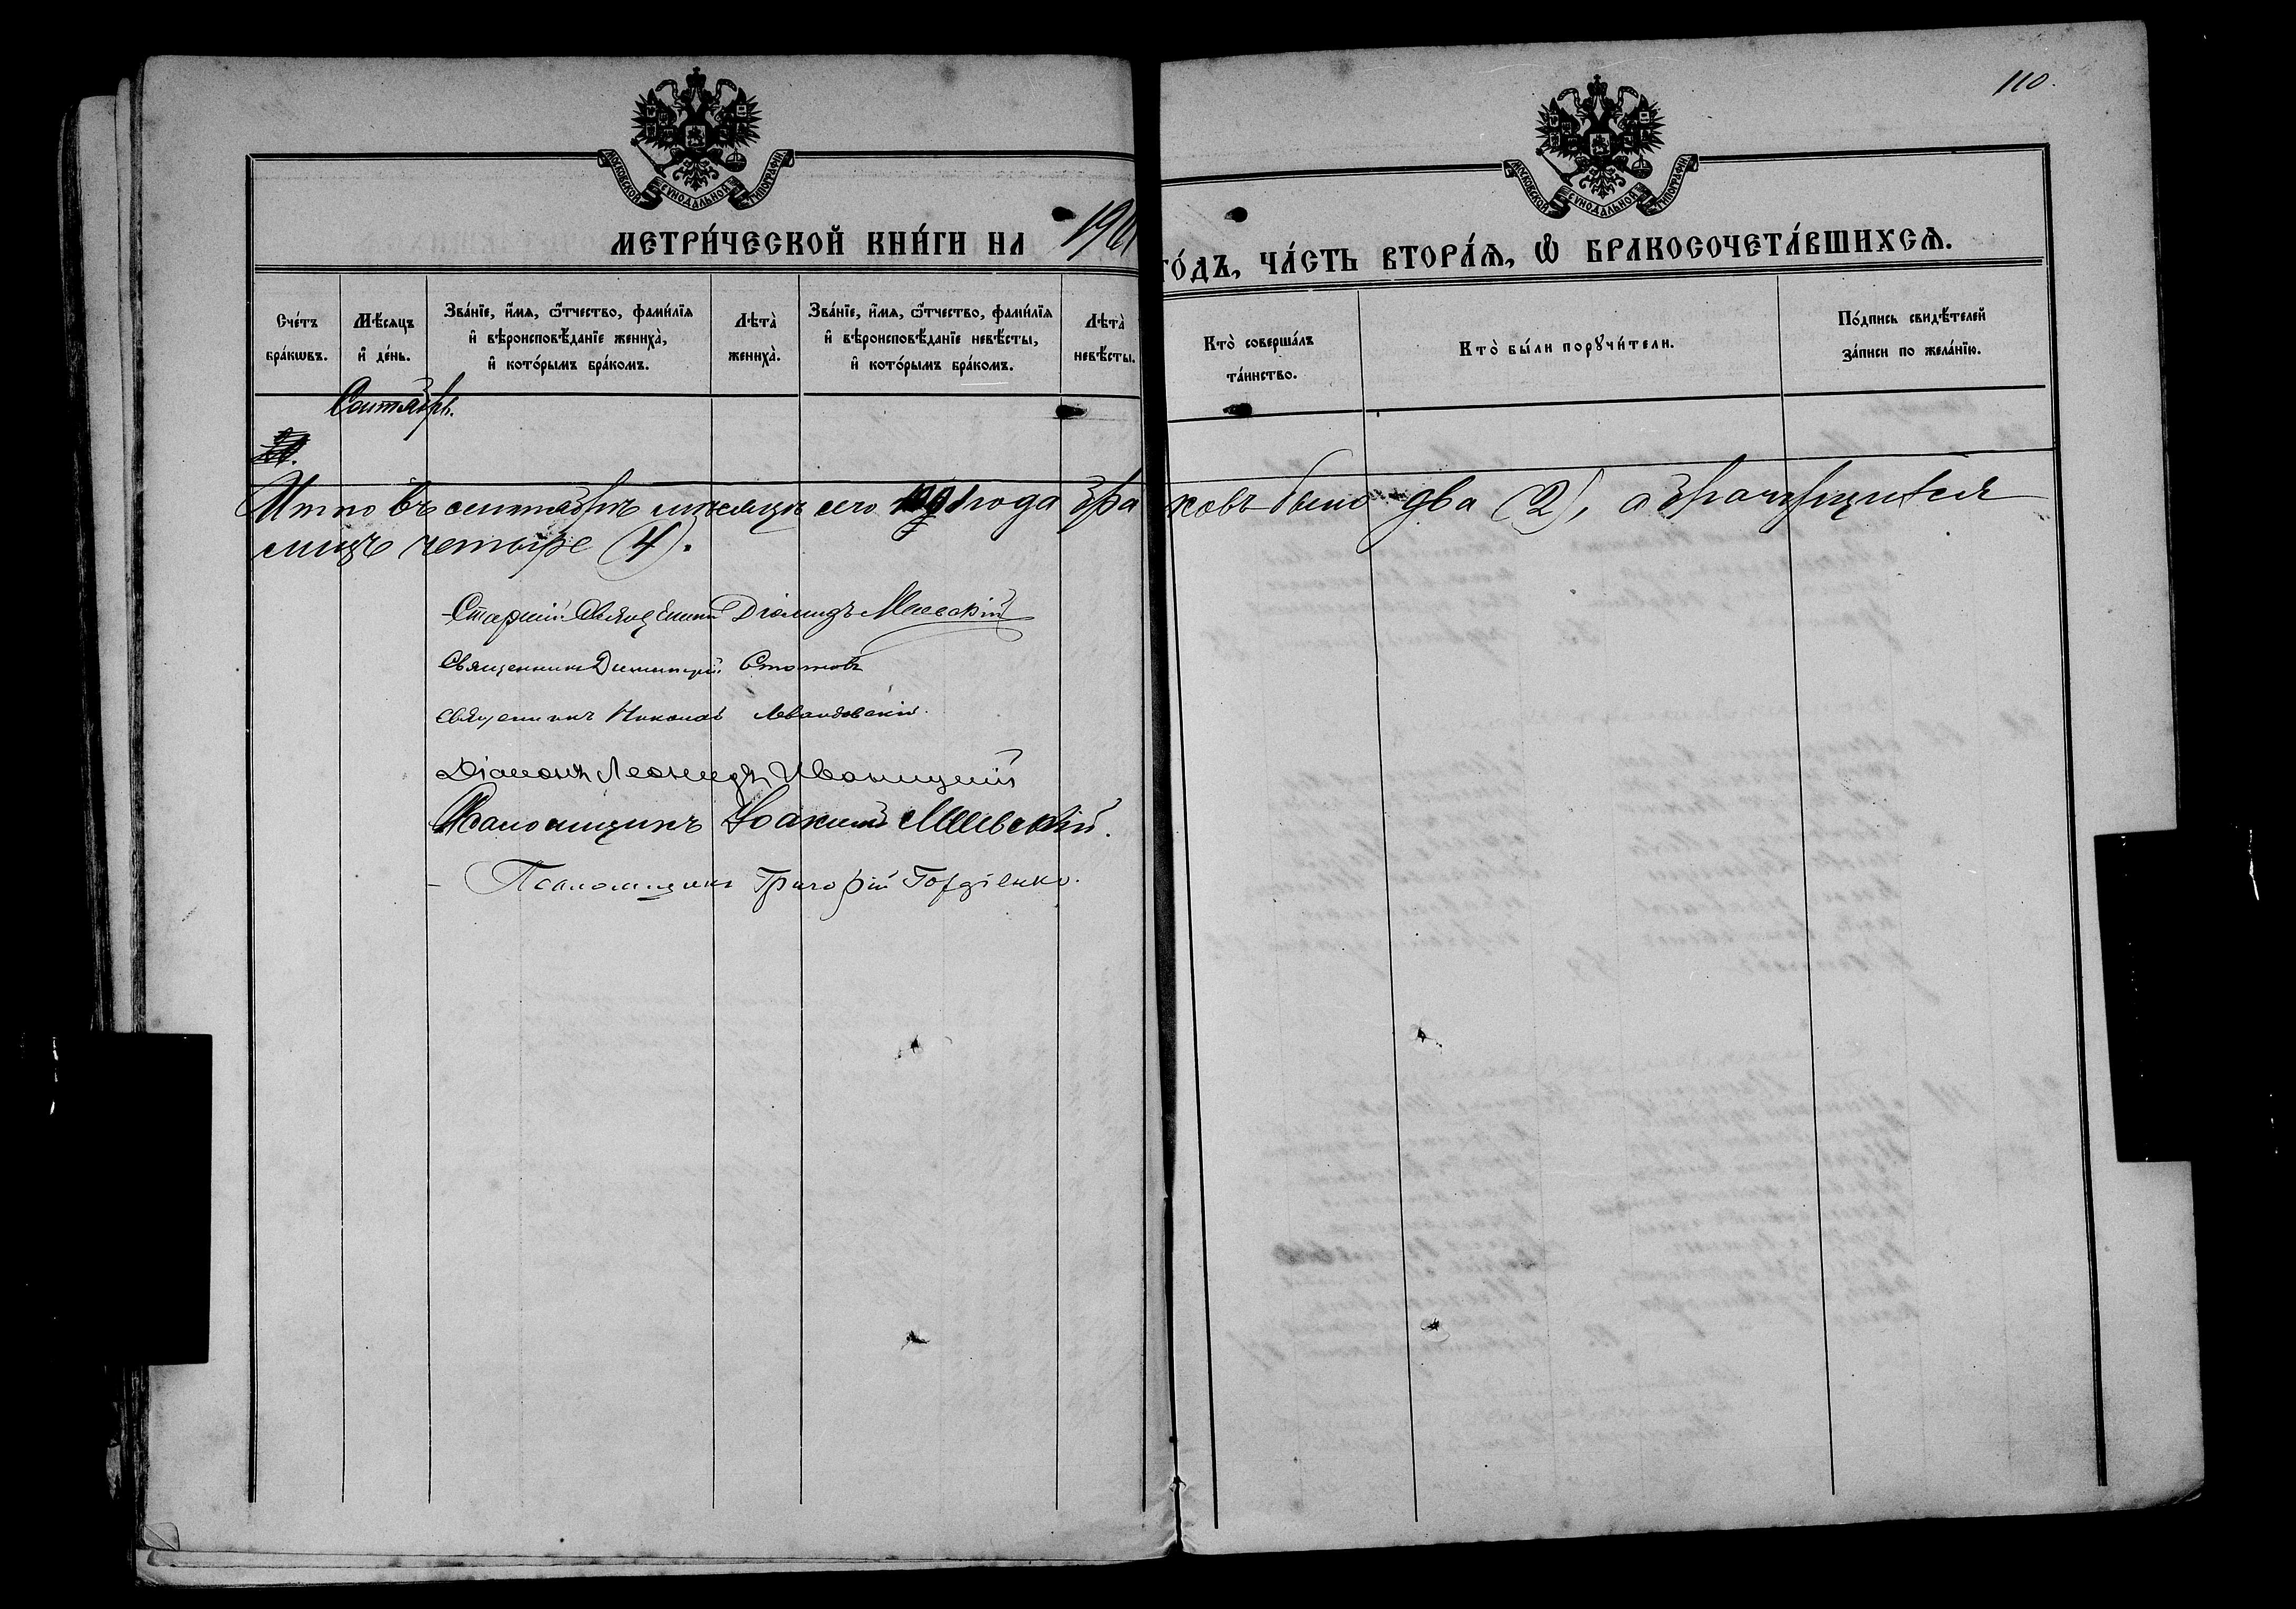 110.
МОСКОВСКОЙ СѴНОДАЛЬНОЙ ТИПОГРАФІИ
МОСКОВСКОЙ СѴНОДАЛЬНОЙ ТИПОГРАФІИ
МЕТРИ́ЧЕСКОЙ КНИ́ГИ НА 1901 ГО́ДЪ, ЧА́СТЬ ВТОРА́Я, Ѿ БРАКОСОЧЕТА́ВШИХСЯ.
Сче́тъ бра́кѡвъ.
Мѣ́сяцъ и҆ де́нь.
Зва́нїе, и҆́мя, ѻ҆́тчество, фами́лїя и҆ вѣроисповѣ́данїе жениха̀, и҆ кото́рымъ бра́комъ.
Лѣта̀ жениха̀.
Зва́нїе, и҆́мя, ѻ҆́тчество, фами́лїя и҆ вѣроисповѣ́данїе невѣ́сты, и҆ кото́рымъ бра́комъ.
Лѣта̀ невѣ́сты.
Кто̀ соверша́лъ та́инство.
Кто̀ бы́ли порꙋчи́тели.
По́дпись свидѣ́телей за́писи по жела́нїю.
Сентябрь.
Итого въ сентябрѣ мѣсяцѣ сего 1901 года браковъ было два (2), а брачущихся
лицъ четыре (4).
Старшій Священникъ Діомидъ
Священникъ Димитрій
Священникъ Николай Левандовскій.
Діаконъ Леонидъ Иваницкій
Псаломщикъ Іоакимъ
Псаломщикъ Григорій Гордіенко.